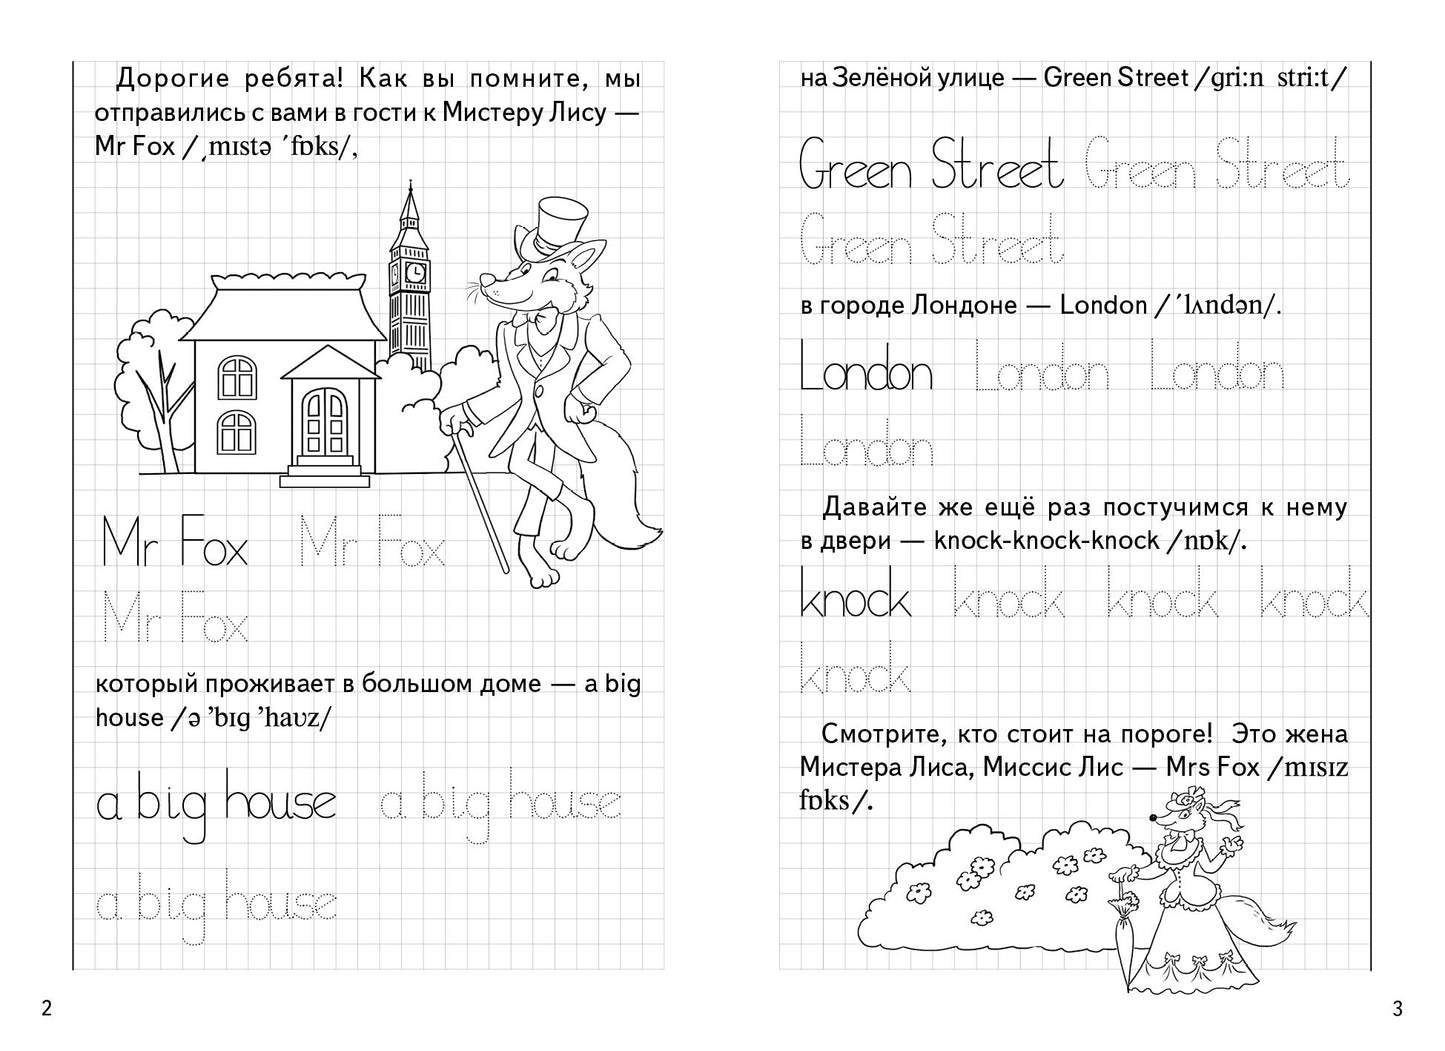 Дорогие ребята! Как вы помните, мы
отправились с вами в гости к Мистеру Лису —
Mr Fox /ˌmɪstə ´fɒks/,
Mr Fox Mr Fox
Mr Fox
который проживает в большом доме — a big
house /ə ’bɪg ’haʊz/
a big house a big house
a big house
2
на Зелёной улице — Green Street /gri:n stri:t/
Green Street Green Street
Green Street
в городе Лондоне — London /´lʌndən/.
London London London
London
Давайте же ещё раз постучимся к нему
в двери — knock-knock-knock /nɒk/.
knock knock knock knock
knock
Смотрите, кто стоит на пороге! Это жена
Мистера Лиса, Миссис Лис — Mrs Fox /mɪsɪz
fɒks/.
3